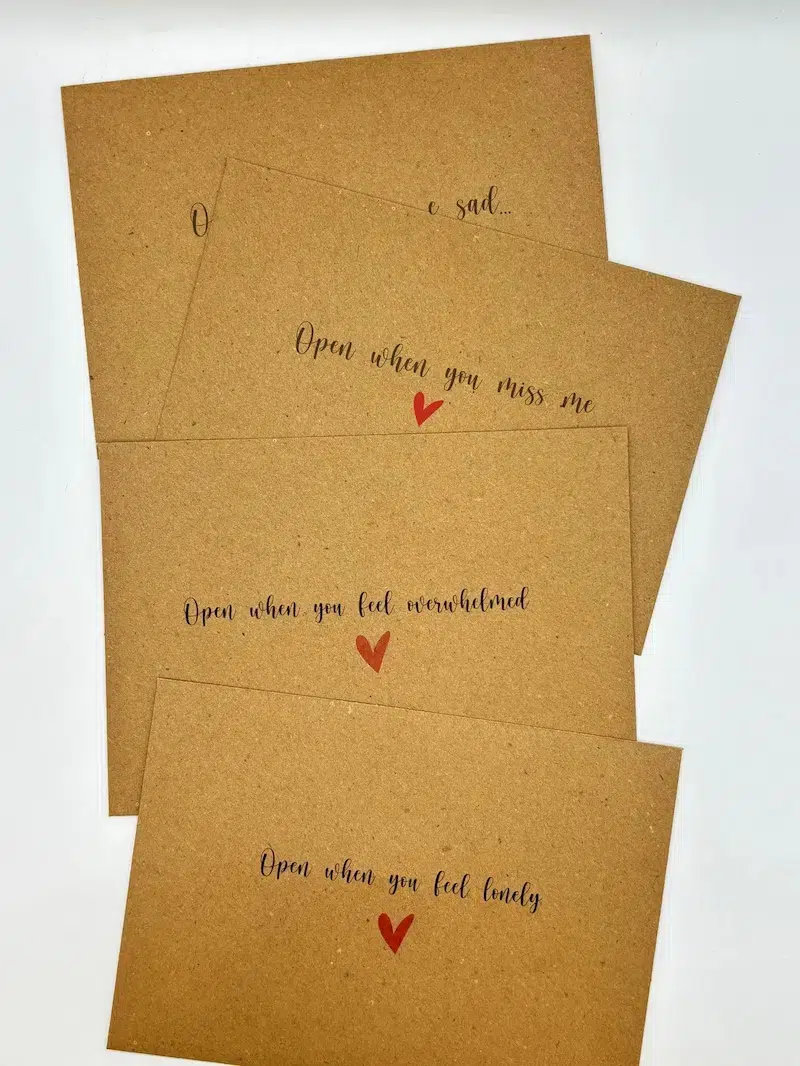 sad...
Open when you miss me
Open when you feel overwhelmed
Open when you feel lonely